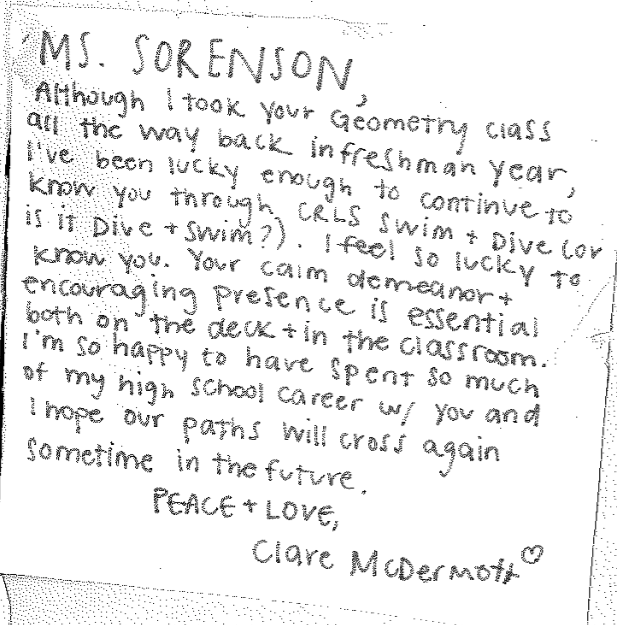 MS. SORENSON,
Although I took your Geometry class
all the way back in freshman year,
I've been lucky enough to continue to
know you through CRLS Swim + Dive (or
is it Dive + Swim?). I feel so lucky to
know you. Your calm demeanor +
encouraging presence is essential
both on the deck + in the classroom.
I'm so happy to have spent so much
of my high school career w/ you and
I hope our paths will cross again
sometime in the future.
PEACE + LOVE,
Clare McDermott ♡